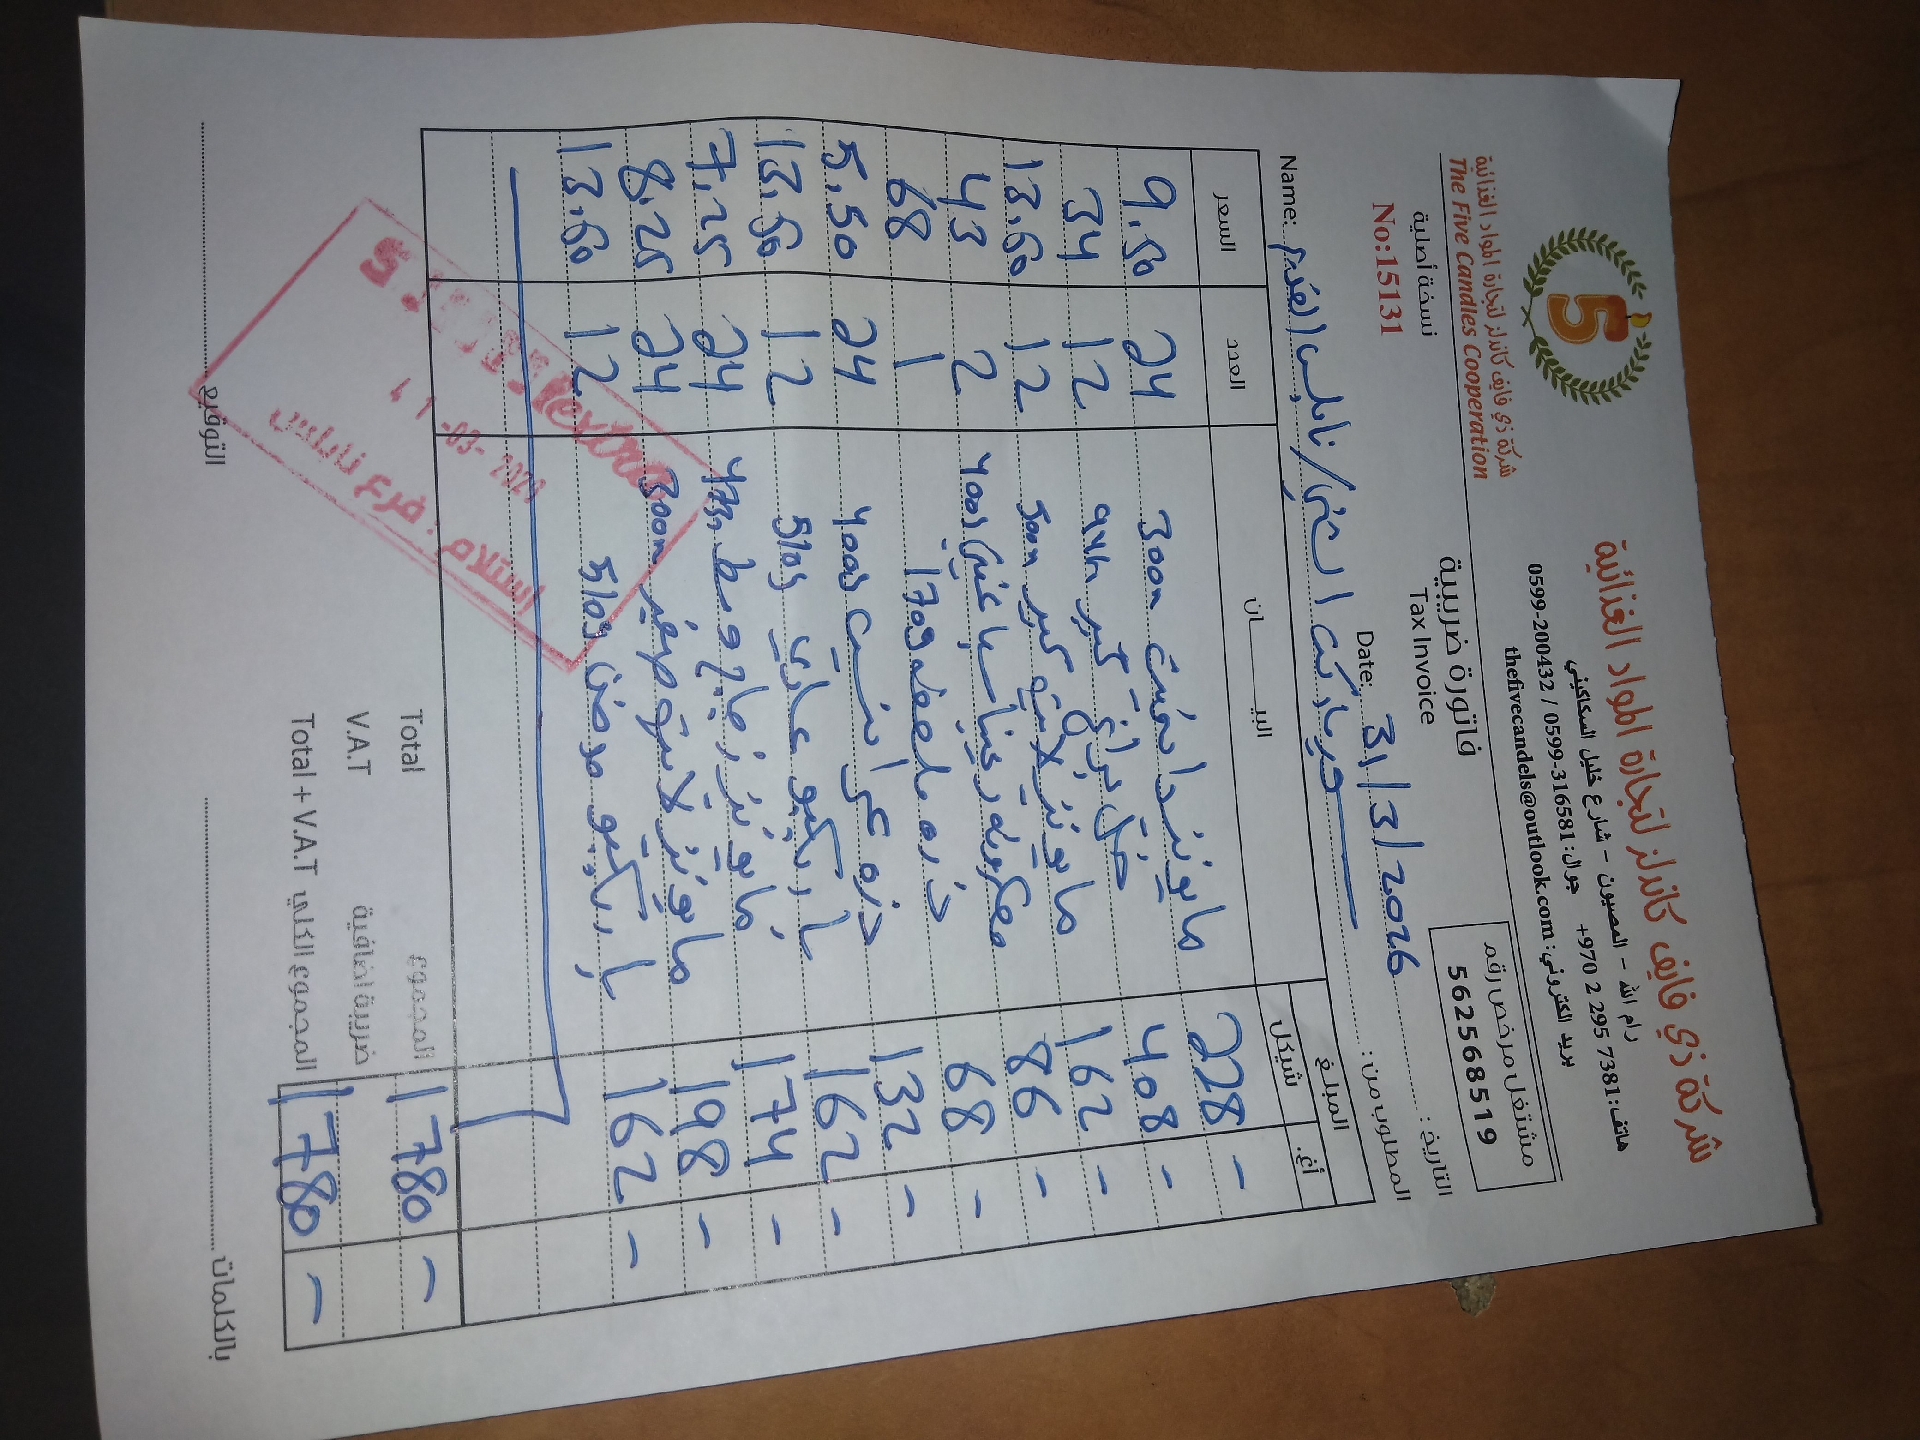 شركة ذي فايف كاندلز لتجارة المواد الغذائية
رام الله - المصيون - شارع خليل السكاكيني
هاتف: +970 2 295 7381 جوال: 0599-316581 / 0599-200432
بريد الكتروني: thefivecandels@outlook.com
5
شركة ذي فايف كاندلز لتجارة المواد الغذائية
The Five Candles Cooperation
مشتغل مرخص رقم
562568519
فاتورة ضريبية
Tax Invoice
نسخة أصلية
No:15131
التاريخ: 31/3/2026 Date:
المطلوب من: ميني ماركت / نابلس Name:
المبلغ البيــــــان العدد السعر
شيكل أغ.
228 - مايونيز دايت 300m 24 9.50
408 - كبير 12 34
162 - مايونيز لايت كبير 500m 12 13.50
86 - 2 43
68 - ذره 1 68
132 - ذره 400g 24 5.50
162 - باربكيو 510g 12 13.50
174 - مايونيز وسط 473m 24 7.25
198 - مايونيز لايت صغير 300m 24 8.25
162 - باربكيو مدخن 510g 12 13.50
1780 - المجموع Total
ضريبة اضافية V.A.T
1780 - المجموع الكلي Total + V.A.T
استلام . فرع نابلس
بالكلمات التوقيع